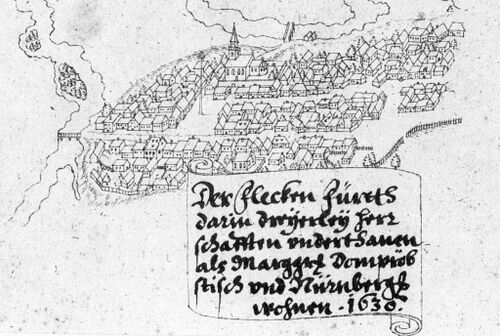 Der Flecken Fürth
darin dreyerley herr
schafften vnderthanen
als Marggrl Dompröb
stisch vnd Nürnbergs
wohnen . 1630.